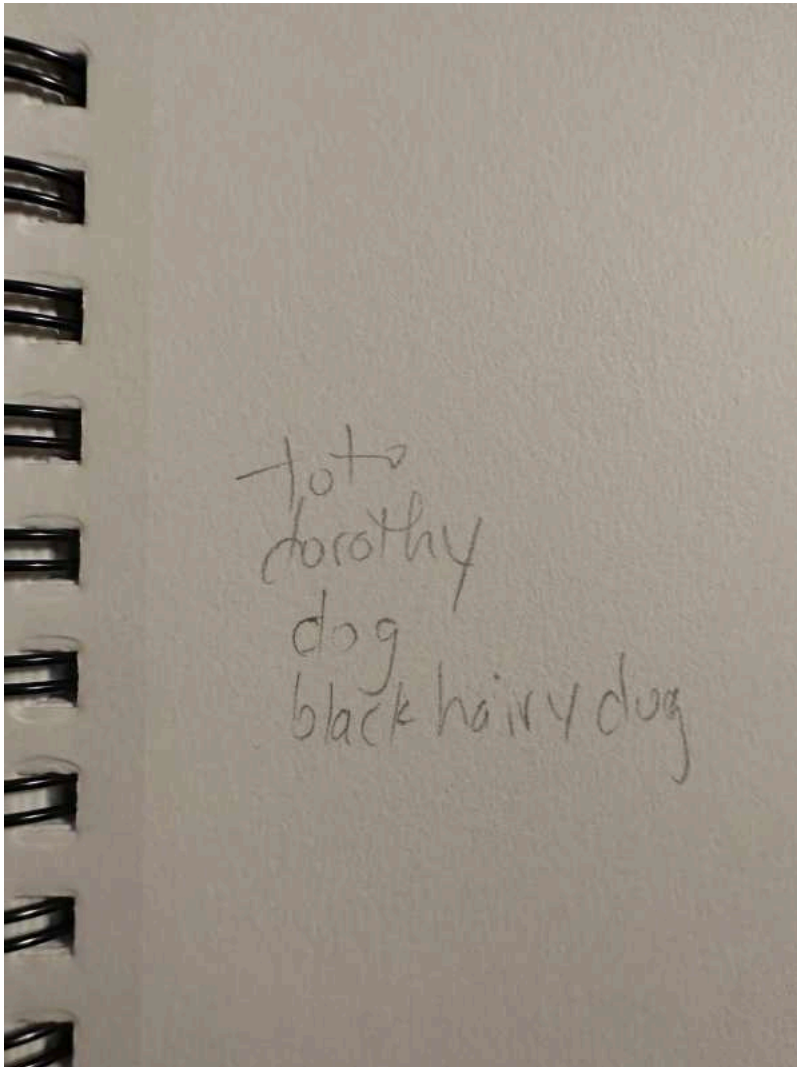 toto
dorothy
dog
black hairy dog